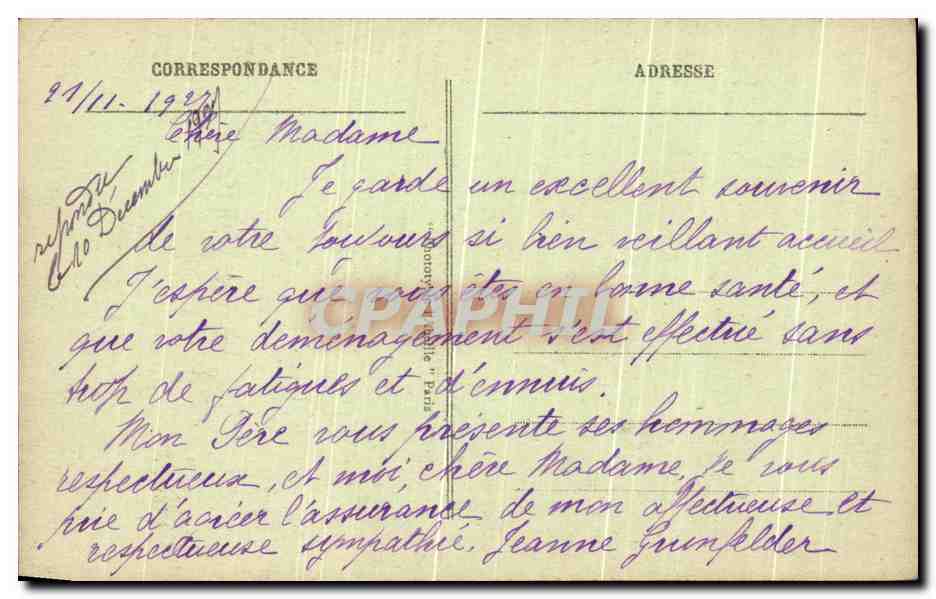 CORRESPONDANCE
ADRESSE
21/11. 192
Chère Madame
repondu
10 Décembre
Je garde un excellent souvenir
de votre toujours si bien veillant accueil
J'espère que vous êtes en bonne santé, et
que votre déménagement s'est effectué sans
trop de fatigues et d'ennuis.
Mon Père vous présente ses hommages
respectueux, et moi, chère Madame, je vous
prie d'agréer l'assurance de mon affectueuse et
respectueuse sympathie. Jeanne Grunfelder
" Paris
CPAPHIL